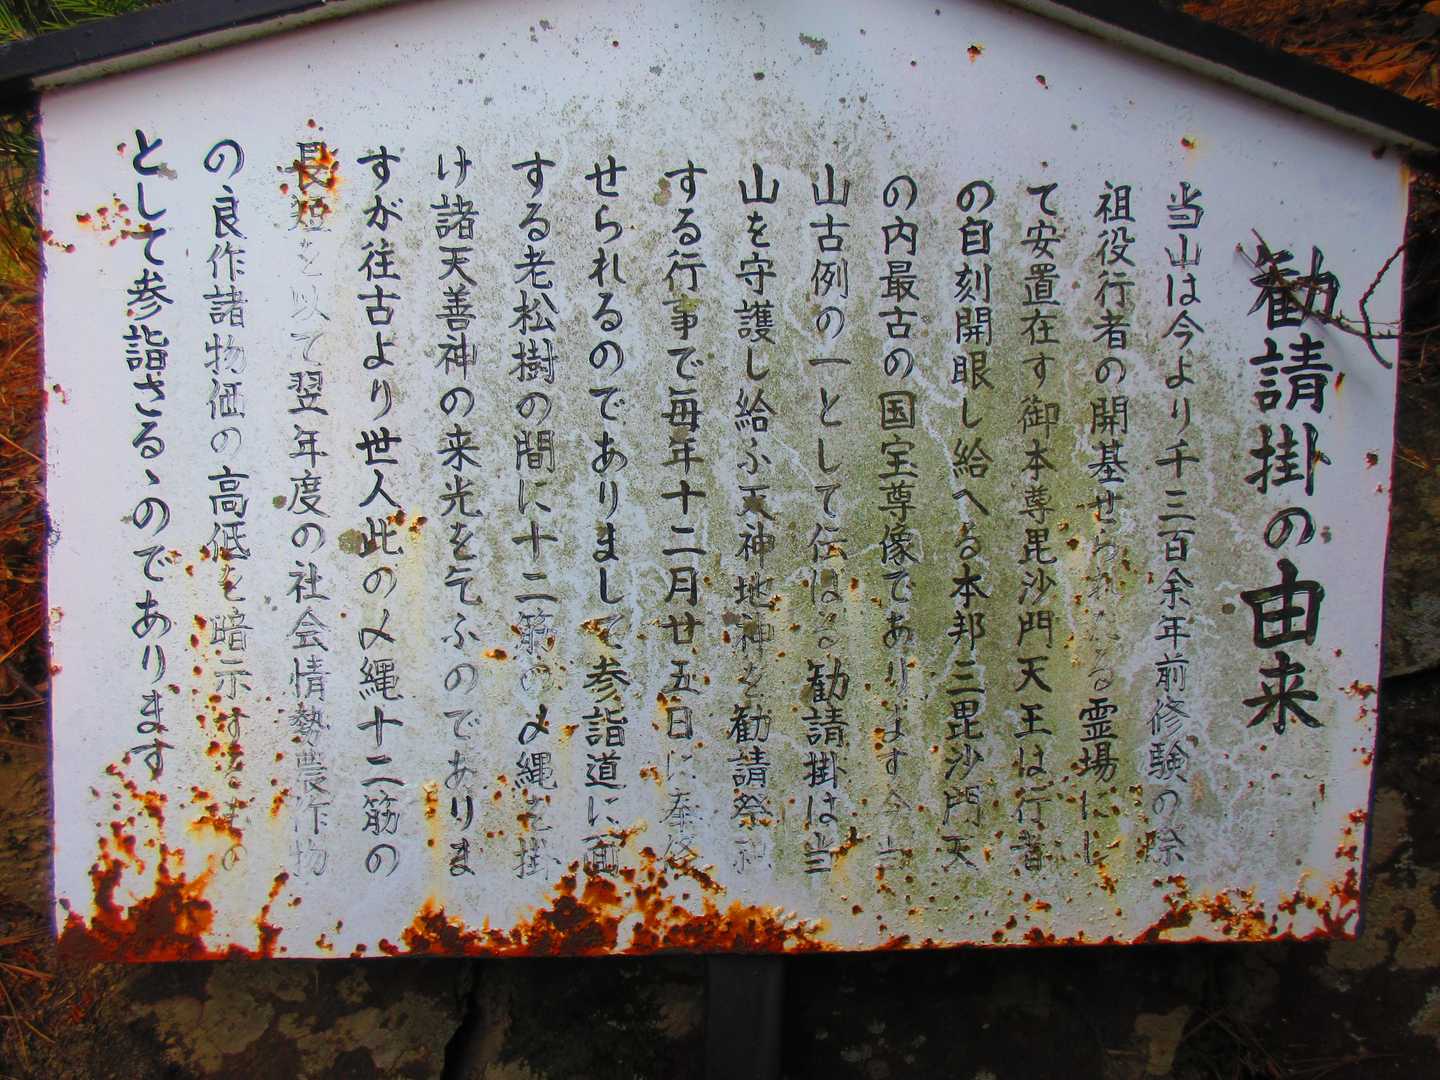 勧請掛の由来
当山は今より千三百余年前修験の宗
祖役行者の開基せられたる霊場にし
て安置在す御本尊毘沙門天王は行者
の自刻開眼し給へる本邦三毘沙門天
の内最古の国宝尊像であります今当
山古例の一として伝はる勧請掛は当
山を守護し給ふ天神地神を勧請祭祀
する行事で毎年十二月廿五日に奉修
せられるのでありまして参詣道に面
する老松樹の間に十二筋の〆縄を掛
け諸天善神の来光を乞ふのでありま
すが往古より世人此の〆縄十二筋の
長短を以て翌年度の社会情勢農作物
の良作諸物価の高低を暗示するもの
として参詣さるゝのであります